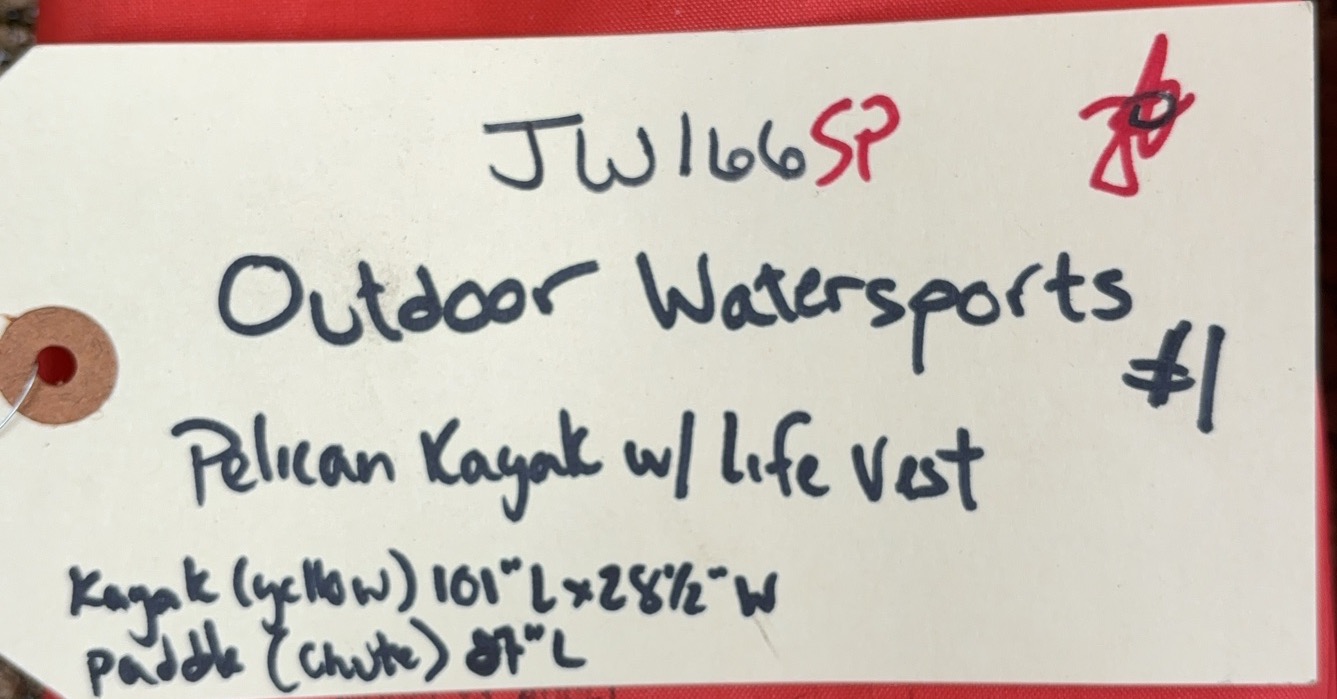 JW166SP
Outdoor Watersports
#1
Pelican Kayak w/ Life Vest
Kayak (yellow) 101" L x 28½" W
Paddle (Chute) 87" L